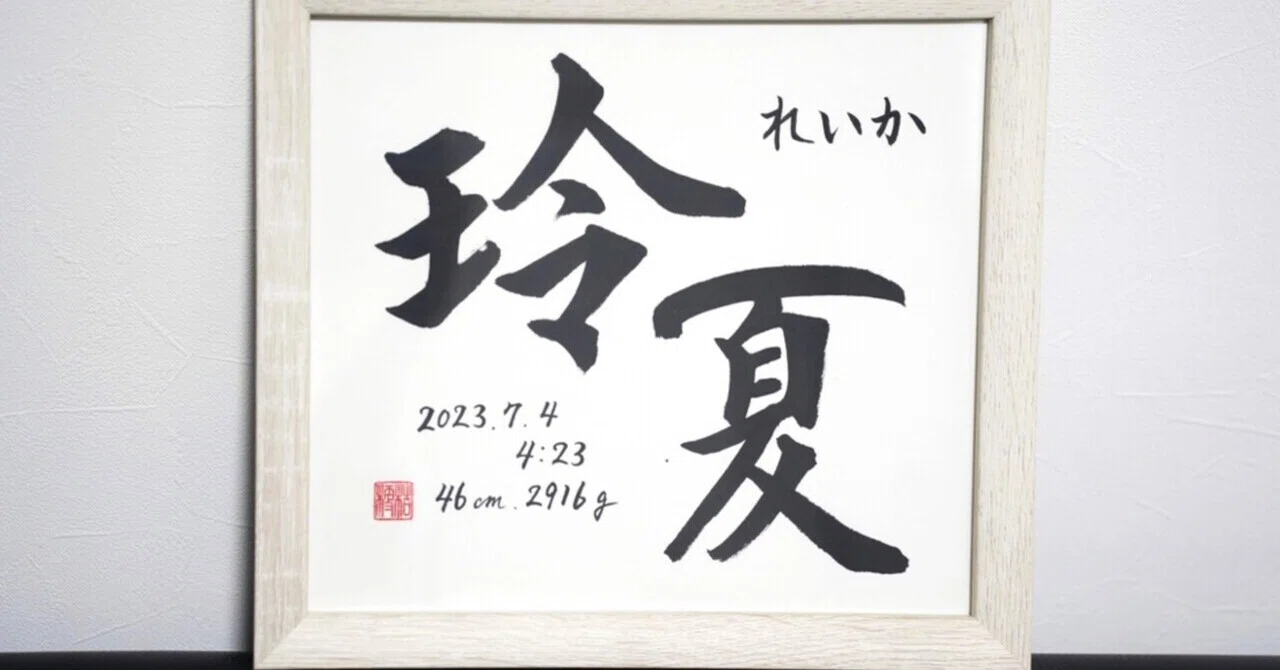 玲夏
れいか
2023.7.4
4:23
46cm.2916g